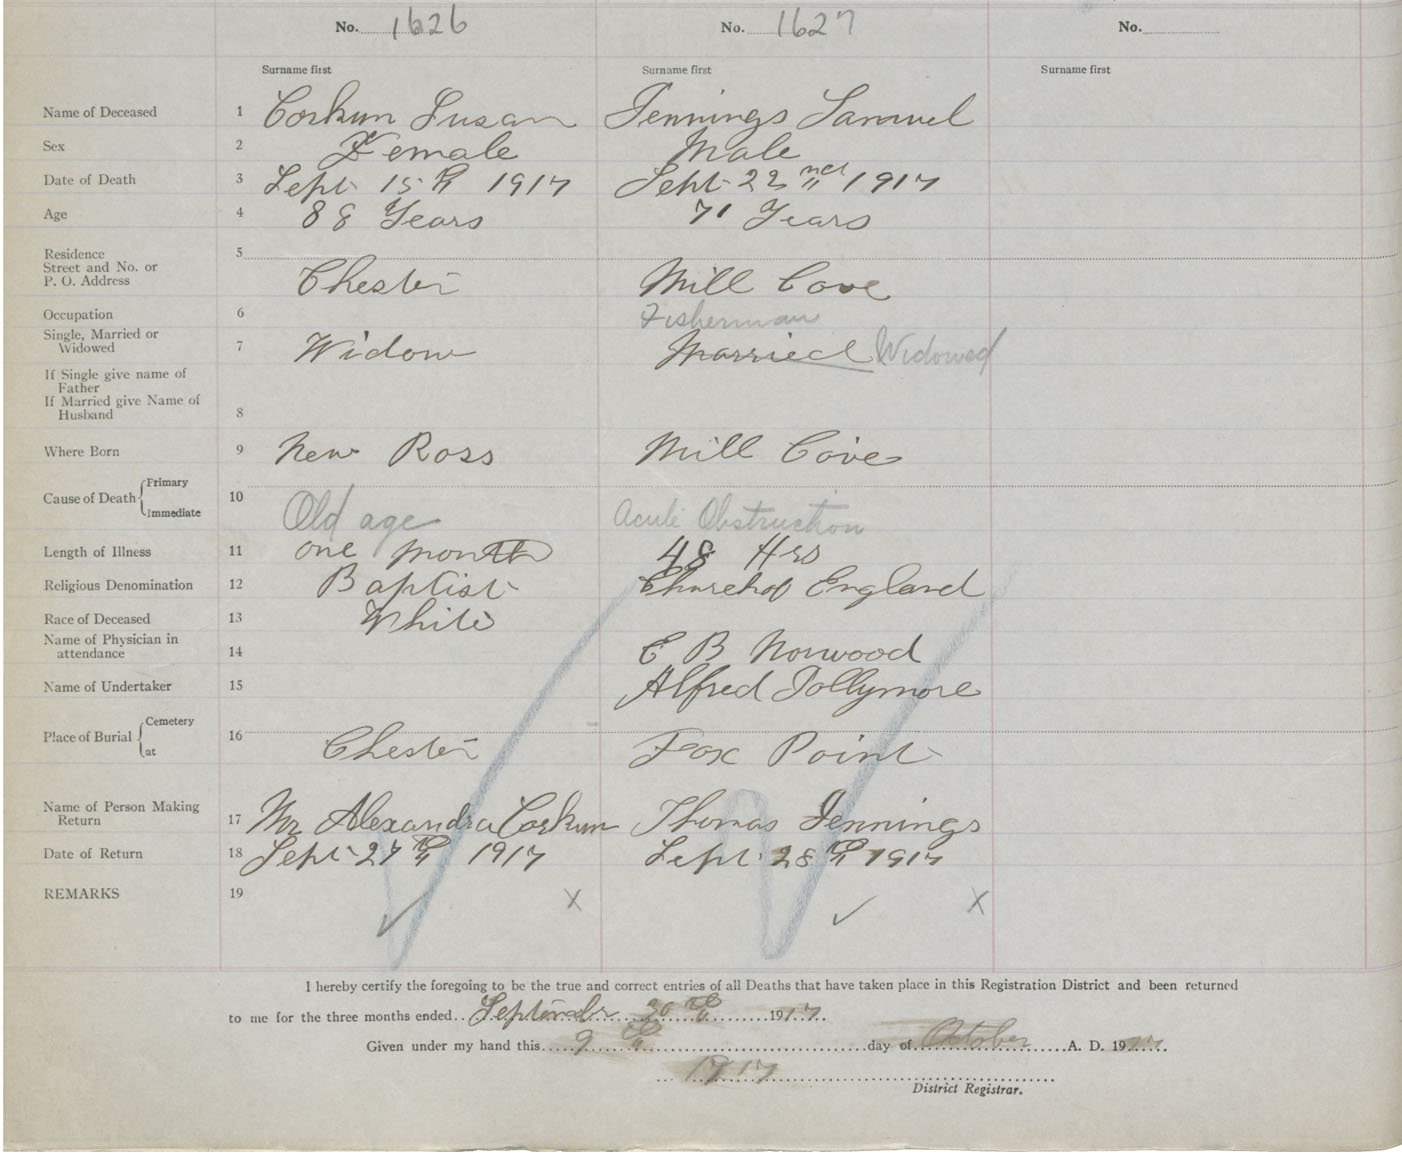 No. 1626 No. 1627 No.
Surname first Surname first Surname first
Name of Deceased 1 Corkum Susan Jennings Samuel
Sex 2 Female Male
Date of Death 3 Sept 15th 1917 Sept 22nd 1917
Age 4 88 Years 71 Years
Residence 5
Street and No. or
P. O. Address Chester Mill Cove
Occupation 6 Fisherman
Single, Married or
Widowed 7 Widow Married Widowed
If Single give name of
Father
If Married give Name of
Husband 8
Where Born 9 New Ross Mill Cove
Cause of Death { Primary
Immediate 10 Old age Acute Obstruction
Length of Illness 11 one month 48 Hrs
Religious Denomination 12 Baptist Church of England
Race of Deceased 13 White
Name of Physician in
attendance 14 E B Norwood
Name of Undertaker 15 Alfred Jollymore
Place of Burial { Cemetery
at 16 Chester Fox Point
Name of Person Making
Return 17 Mr Alexandra Corkum Thomas Jennings
Date of Return 18 Sept 27th 1917 Sept 28th 1917
REMARKS 19 X X
I hereby certify the foregoing to be the true and correct entries of all Deaths that have taken place in this Registration District and been returned
to me for the three months ended September 30th 1917
Given under my hand this 9th day of October A. D. 1917
1917
District Registrar.